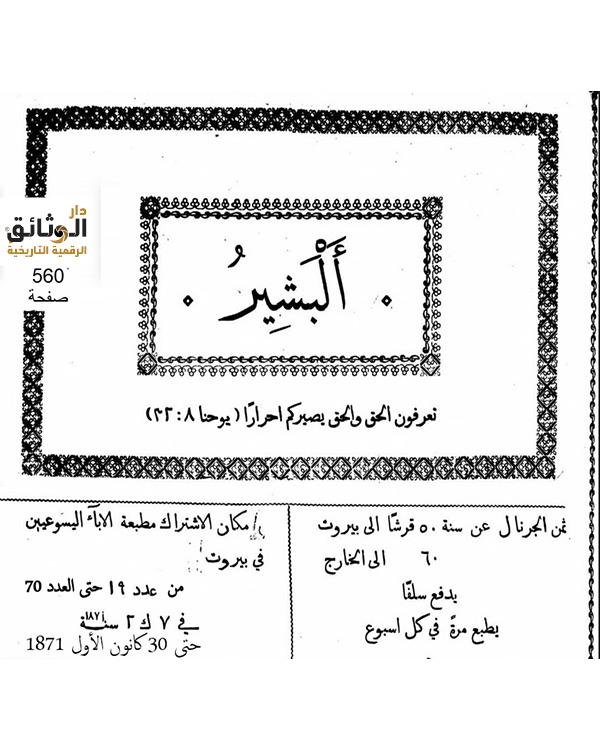 دار
الوثائق
الرقمية التاريخية
560
صفحة
أَلْبَشِيرُ
تعرفون الحق والحق يصيركم احرارًا (يوحنا ٨:٣٢)
ثمن الجرنال عن سنة ٥٠ قرشًا الى بيروت
٦٠ الى الخارج
يدفع سلفًا
يطبع مرة في كل اسبوع
مكان الاشتراك مطبعة الاباء اليسوعيين
في بيروت
من عدد ١٩ حتى العدد 70
في ٧ ك ٢ سنة ١٨٧١
حتى 30 كانون الأول 1871